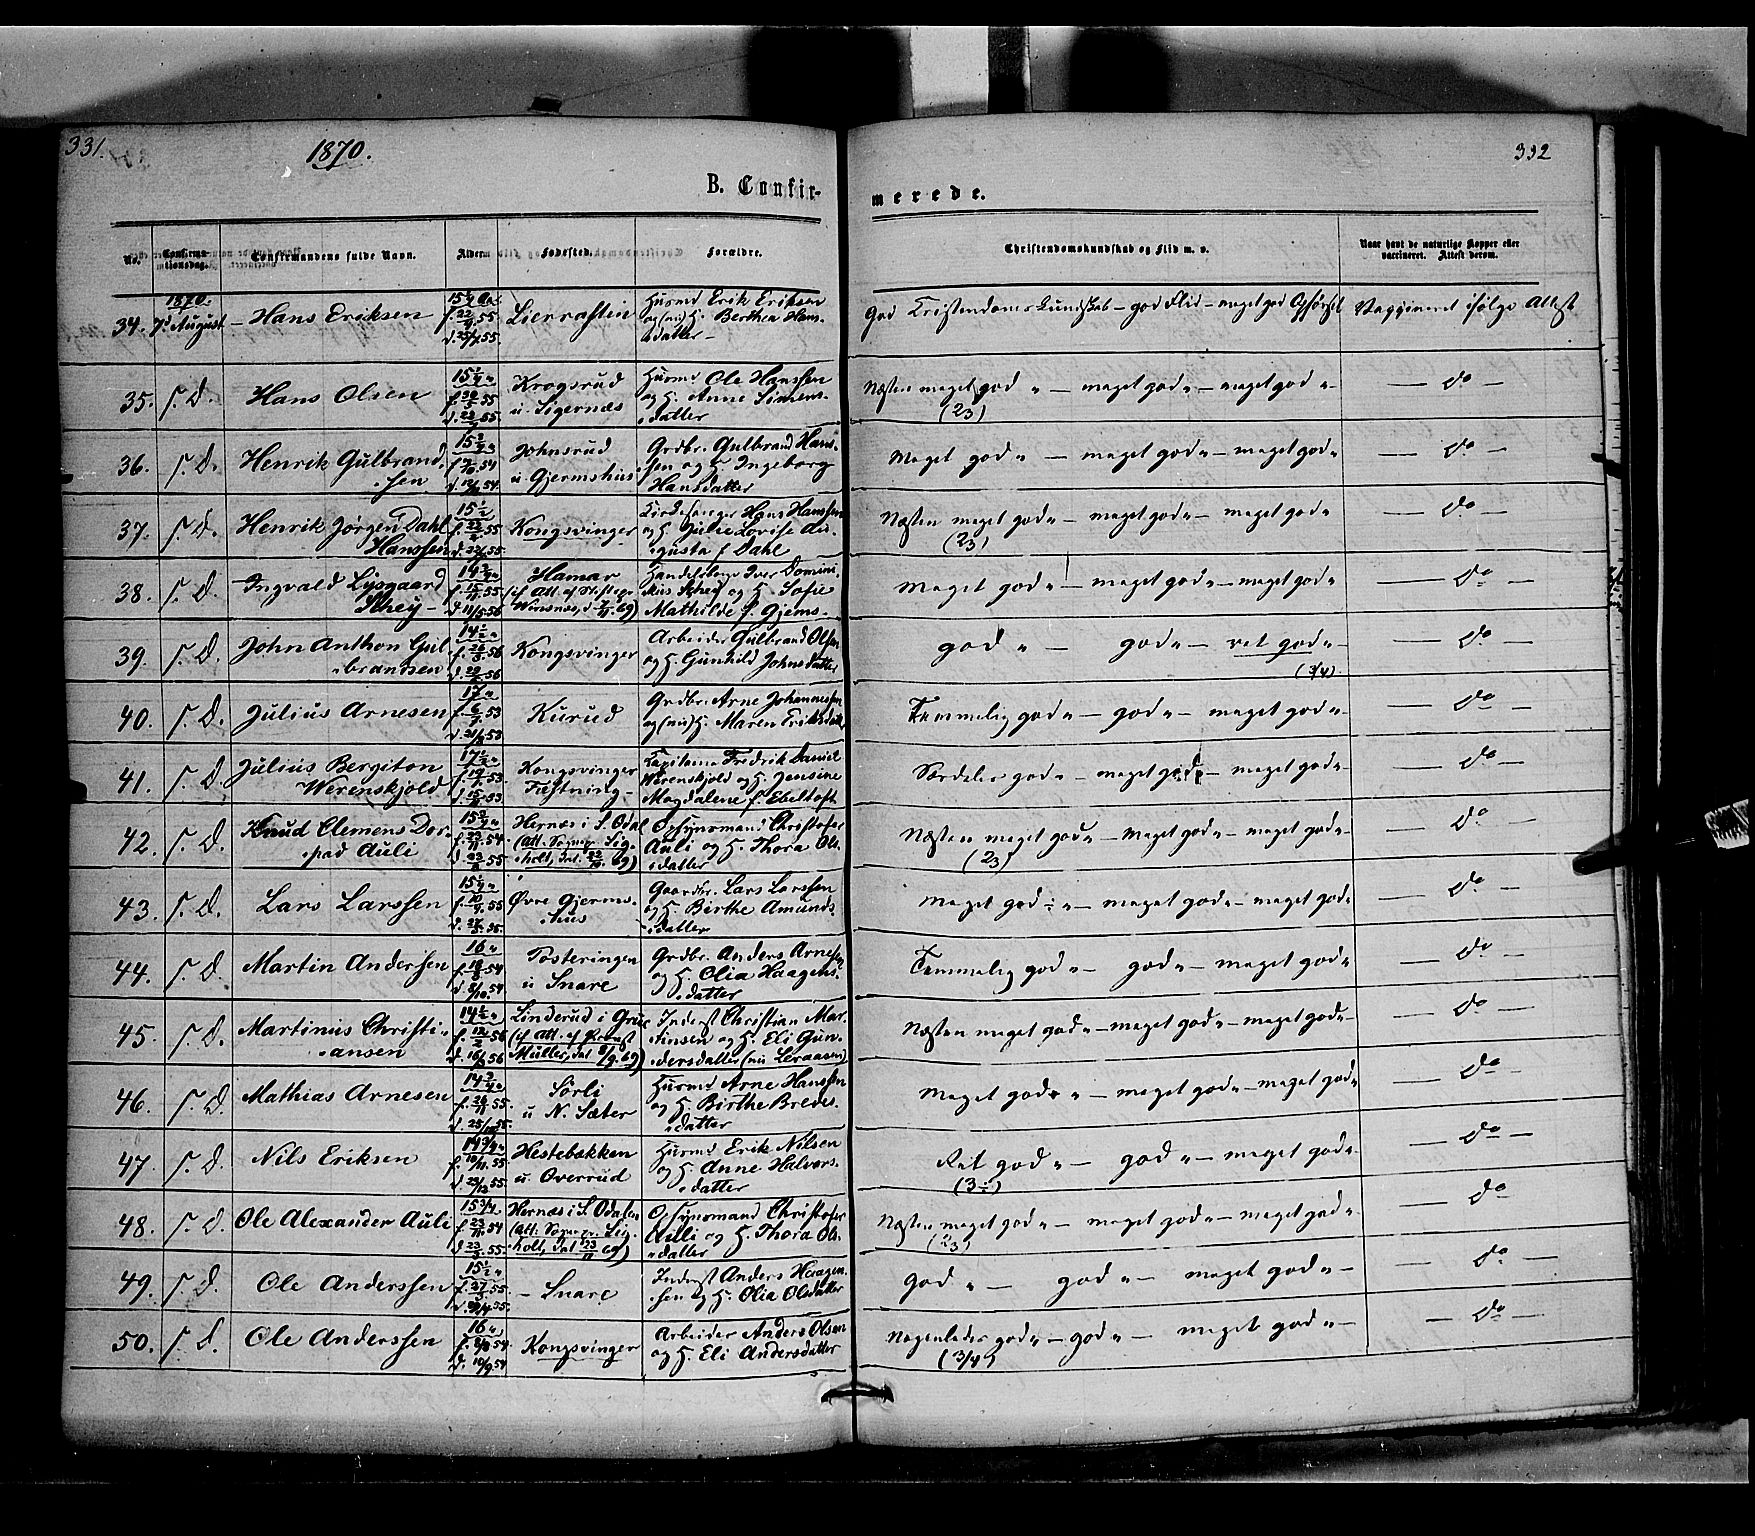 331.
1870.
332
B. Confir-
merede.
No.
Confirma-
tionsdag.
Confirmandens fulde Navn.
Alder
Fødested.
Forældre.
Christendomskundskab og Flid m. v.
Naar havt de naturlige Kopper eller
vaccineret. Attest derom.
34. 1870. 7de August – Hans Eriksen Lierrastien
Husmd Erik Eriksen
og (nu) H. Berthea Hans-
datter –
God Kristendoms Kundskab – god Flid – meget god Opførsel
Vaccineret ifølge Attest
35. s. D. Hans Olsen
Krogsrud
u. Sigernæs
Husmd Ole Hanssen
og H. Anne Simens-
datter
Næsten meget god " – meget god " – meget god " –
(23)
— do —
36. s. D. Henrik Gulbrand-
sen
Johnsrud
u. Gjermshus
Grdbr. Gulbrand Hans-
sen og H. Ingeborg
Hansdatter
Meget god " – meget god " – meget god "
— do —
37. s. D. Henrik Jørgen Dahl
Hanssen
15 1/2
Kongsvinger
Kirkesanger Hans Hanssen
og H. Julie Lovise Au-
gusta f. Dahl
Næsten meget god " – meget god " – meget god "
(23)
— do —
38. s. D. Ingvald Lysgaard
Schey –
Hamar
Winsnes, d.
Handelsbog. Iver Domini-
kus Schey og H. Sofie
Mathilde f. Gjems-
Meget god " – meget god " – meget god "
— do —
39. s. D. John Anthon Gul-
brandsen
Kongsvinger
Arbeider Gulbrand Olsen
og H. Gunhild Johnsdatter
god " – god " – ret god " –
(3/4)
— do —
40. s. D. Julius Arnesen
17 "
Kurud
Grdbr. Arne Johannessen
og (nu) H. Maren Eriksdatt.
Temmelig god " – god " – meget god " –
— do —
41. s. D. Julius Bergiton
Werenskjold
Kongsvinger
Fæstning –
Kapitaine Fredrik Daniel
Werenskjold og H. Jensine
Magdalene f. Ebeltoft
Særdeles god " – meget god " – meget god " –
— do —
42. s. D. Knud Clemens Dor-
pad Auli
Hernæs i S. Odal
Opsynsmand Christofer
Auli og H. Thora Ols-
datter
Næsten meget god " – meget god " – meget god " –
(23)
— do —
43. s. D. Lars Larssen
Øvre Gjerms-
hus
Gaardbr. Lars Larssen
og H. Birthe Amunds-
datter
Meget god " – meget god " – meget god "
— do —
44. s. D. Martin Anderssen
16 "
Tosteringen
u Snare
Grdbr. Anders Arnesen
og H. Olia Haagens-
datter
Temmelig god " – god " – meget god "
— do —
45. s. D. Martinus Christi-
ansen
Linderud i Grue
(if. Att. af Provst
Müller, dat
Inderst Christian Mar-
tinsen og H. Eli Gun-
dersdatter (nu Leraasen)
Næsten meget god " – meget god " – meget god " –
— do —
46. s. D. Mathias Arnesen
Sörli
u N. Sæter
Husmd Arne Hanssen
og H. Birthe Bredes-
datter
Meget god " – meget god " – meget god "
— do —
47. s. D. Nils Eriksen
Hestebækken
u. Overrud
Husmd Erik Nilsen
og H. Anne Halvors-
datter
Ret god " – god " – meget god " –
— do —
48. s. D. Ole Alexander Auli
15 3/4
Hernæs i S. Odalen
Opsynsmand Christofer
Auli og H. Thora Ols-
datter
Næsten meget god " – meget god " – meget god " –
(23)
— do —
49. s. D. Ole Anderssen
15 1/2 "
– Snare
Inderst Anders Haagen-
sen og H. Olia Olsdatter
god " – god " – meget god " –
— do —
50. s. D. Ole Anderssen
16 "
Kongsvinger
Arbeider Anders Olsen
og H. Eli Andersdatter
Nogenledes god " – god " – meget god " –
(3/4)
— do —